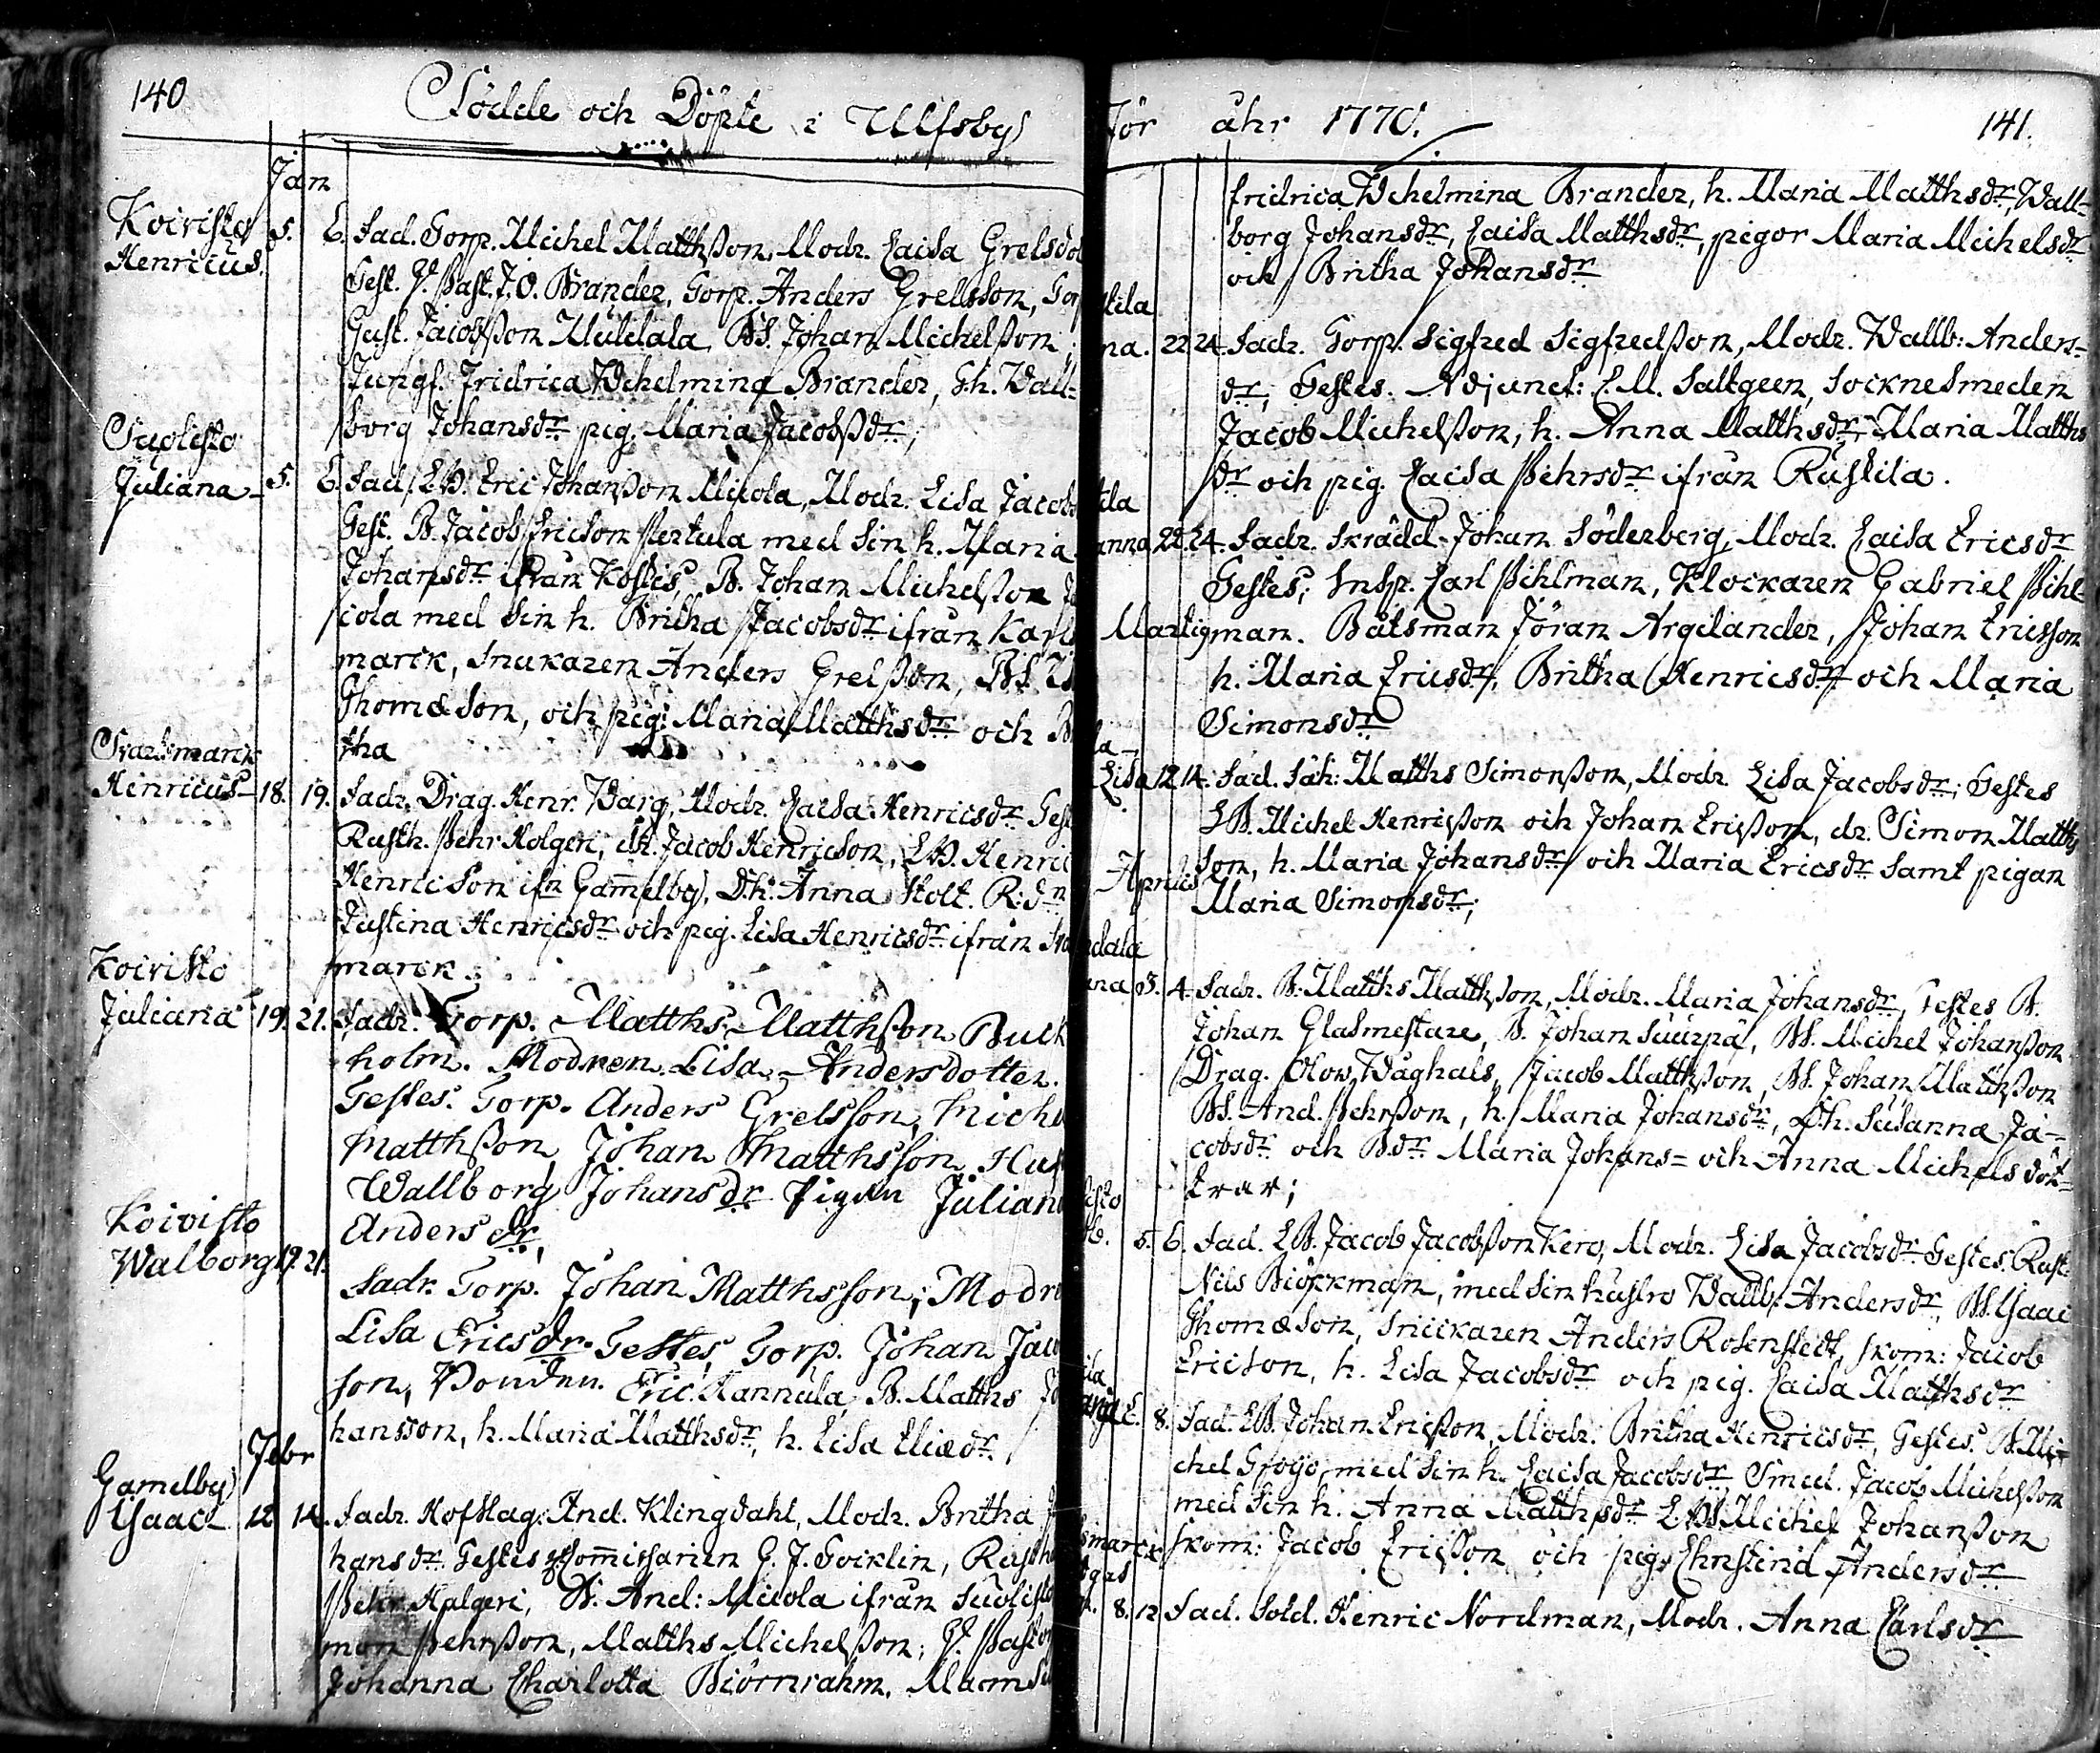 140
Födde och Döpte i Ulfsby
Jan
Koivisto
Henricus. 5. 6. Fad. Torp. Michel Matthsson, Modr. Caisa Grelsdot
Test. Past. J. O. Brander, Torp. Anders Grelsson, Torp
Gust. Jacobsson Uuldala, BS. Johan Michelsson;
Jungf. Fridrica Wehelmina Brander, Th. Wall-
borg Johansdr pig. Maria Jacobsdr;
Suolisto
Juliana 5. 6. Fad. LB. Eric Johansson Micola, Modr. Lisa Jacobs
Test. B. Jacob Ericson Pertula med sin h. Maria
Johansdr ifrån Kostis, B. Johan Michelsson
cola med sin h. Britha Jacobsdr ifrån Karls
marck, Snickaren Anders Grelsson, BS.
Thomæson, och pig: Maria Matthsdr och
tha
Svartsmarck
Henricus 18. 19. Fadr. Drag. Henr. Warg, Modr. Caisa Henricsdr Test
Rusth. Pehr Holgeri, dr. Jacob Henricson, LB. Henric
Henricson ifn Gamelby, D.h. Anna Stolt. R:dn
Justina Henricsdr och pig. Lisa Henricsdr ifrån Sva
marck.
Koivisto
Juliana 19. 21. Fadr. Torp. Matths Matthsson Buck
holm. Modren Lisa Andersdotter.
Testes. Torp. Anders Grelsson, Miche
Matthsson, Johan Matthsson, Hust
Wallborg Johansdr Pigan Juliana
Andersdr,
Koivisto
Walborg 19. 21. Fadr. Torp. Johan Matthsson; Modr
Lisa Ericsdr. Testes Torp. Johan Jaco
son, Bonden. Eric Hannula, B. Matths Jo
hansson, h. Maria Matthsdr, h. Lisa Eliædr.
Febr
Gamelby
Isaac 12. 14. Fadr. Hofslag. And. Klingdahl, Modr. Britha
hansdr Testes Commissarien G. J. Gocklin, Rusth
Pehr Holgeri, B. And: Micola ifrån Suolisto
mon Pehrsson, Matths Michelsson; Past
Johanna Charlotta Biörnrahm. Mams
för åhr 1770. 141.
Fridrica Wehelmina Brander, h. Maria Matthsdr, Wall-
borg Johansdr, Caisa Matthsdr, pigor Maria Michelsdr
och Britha Johansdr
tila
na. 22. 24. Fadr. Torp. Sigfred Sigfredsson, Modr. Wallb: Anders-
dr; Testes. Adjunct: E. M. Saltgeen, Socknesmeden
Jacob Michelsson, h. Anna Matthsdr, Maria Matths
dr och pig. Caisa Pehrsdr ifrån Rustila.
anna 22. 24. Fadr. Skrädd. Johan Söderberg, Modr. Caisa Ericsdr
Testes; Insp. Carl Pihlman, Klockaren Gabriel Pihl-
Martig man. Båtsman Jöran Argilander, Johan Ericsson
h. Maria Ericsdr, Britha Henricsdr och Maria
Simonsdr
Lisa 12. 14. Fad. Matths Simonsson, Modr Lisa Jacobsdr; Testes
LB. Michel Henricsson och Johan Ericsson, dr. Simon Matths
son, h. Maria Johansdr och Maria Ericsdr samt pigan
Maria Simonsdr;
Aprilis
dala
na 3. 4. Fadr. B. Matths Matthsson, Modr. Maria Johansdr, Testes B.
Johan Glasmestare, B. Johan Suurpä, BS. Michel Johansson
Drag. Olow Wåghals, Jacob Matthsson, BS. Johan Matthsson
BS. And. Pehrsson, h. Maria Johansdr, D.h. Susanna Ja-
cobsdr och Bdr Maria Johans= och Anna Michelsdöt-
trar;
isto
b. 5. 6. Fad. LB. Jacob Jacobsson Kero, Modr. Lisa Jacobsdr Testes. Rust.
Nils Biörkman, med sin hustro Wallb: Andersdr, BS. Isaac
Thomæson, Snickaren Anders Rosenstedt, skom: Jacob
Ericson, h. Lisa Jacobsdr och pig. Caisa Matthsdr
8. Fad. LB. Johan Ericsson, Modr. Britha Henricsdr, Testes. B. Mi-
chel med sin h. Caisa Jacobsdr, Smed. Jacob Michelsson
med sin h. Anna Matthsdr LB. Michel Johansson
skom: Jacob Ericsson och pig. Christina Andersdr
smarck
8. 12 Fad. Sold. Henric Nordman, Modr. Anna Carlsdr